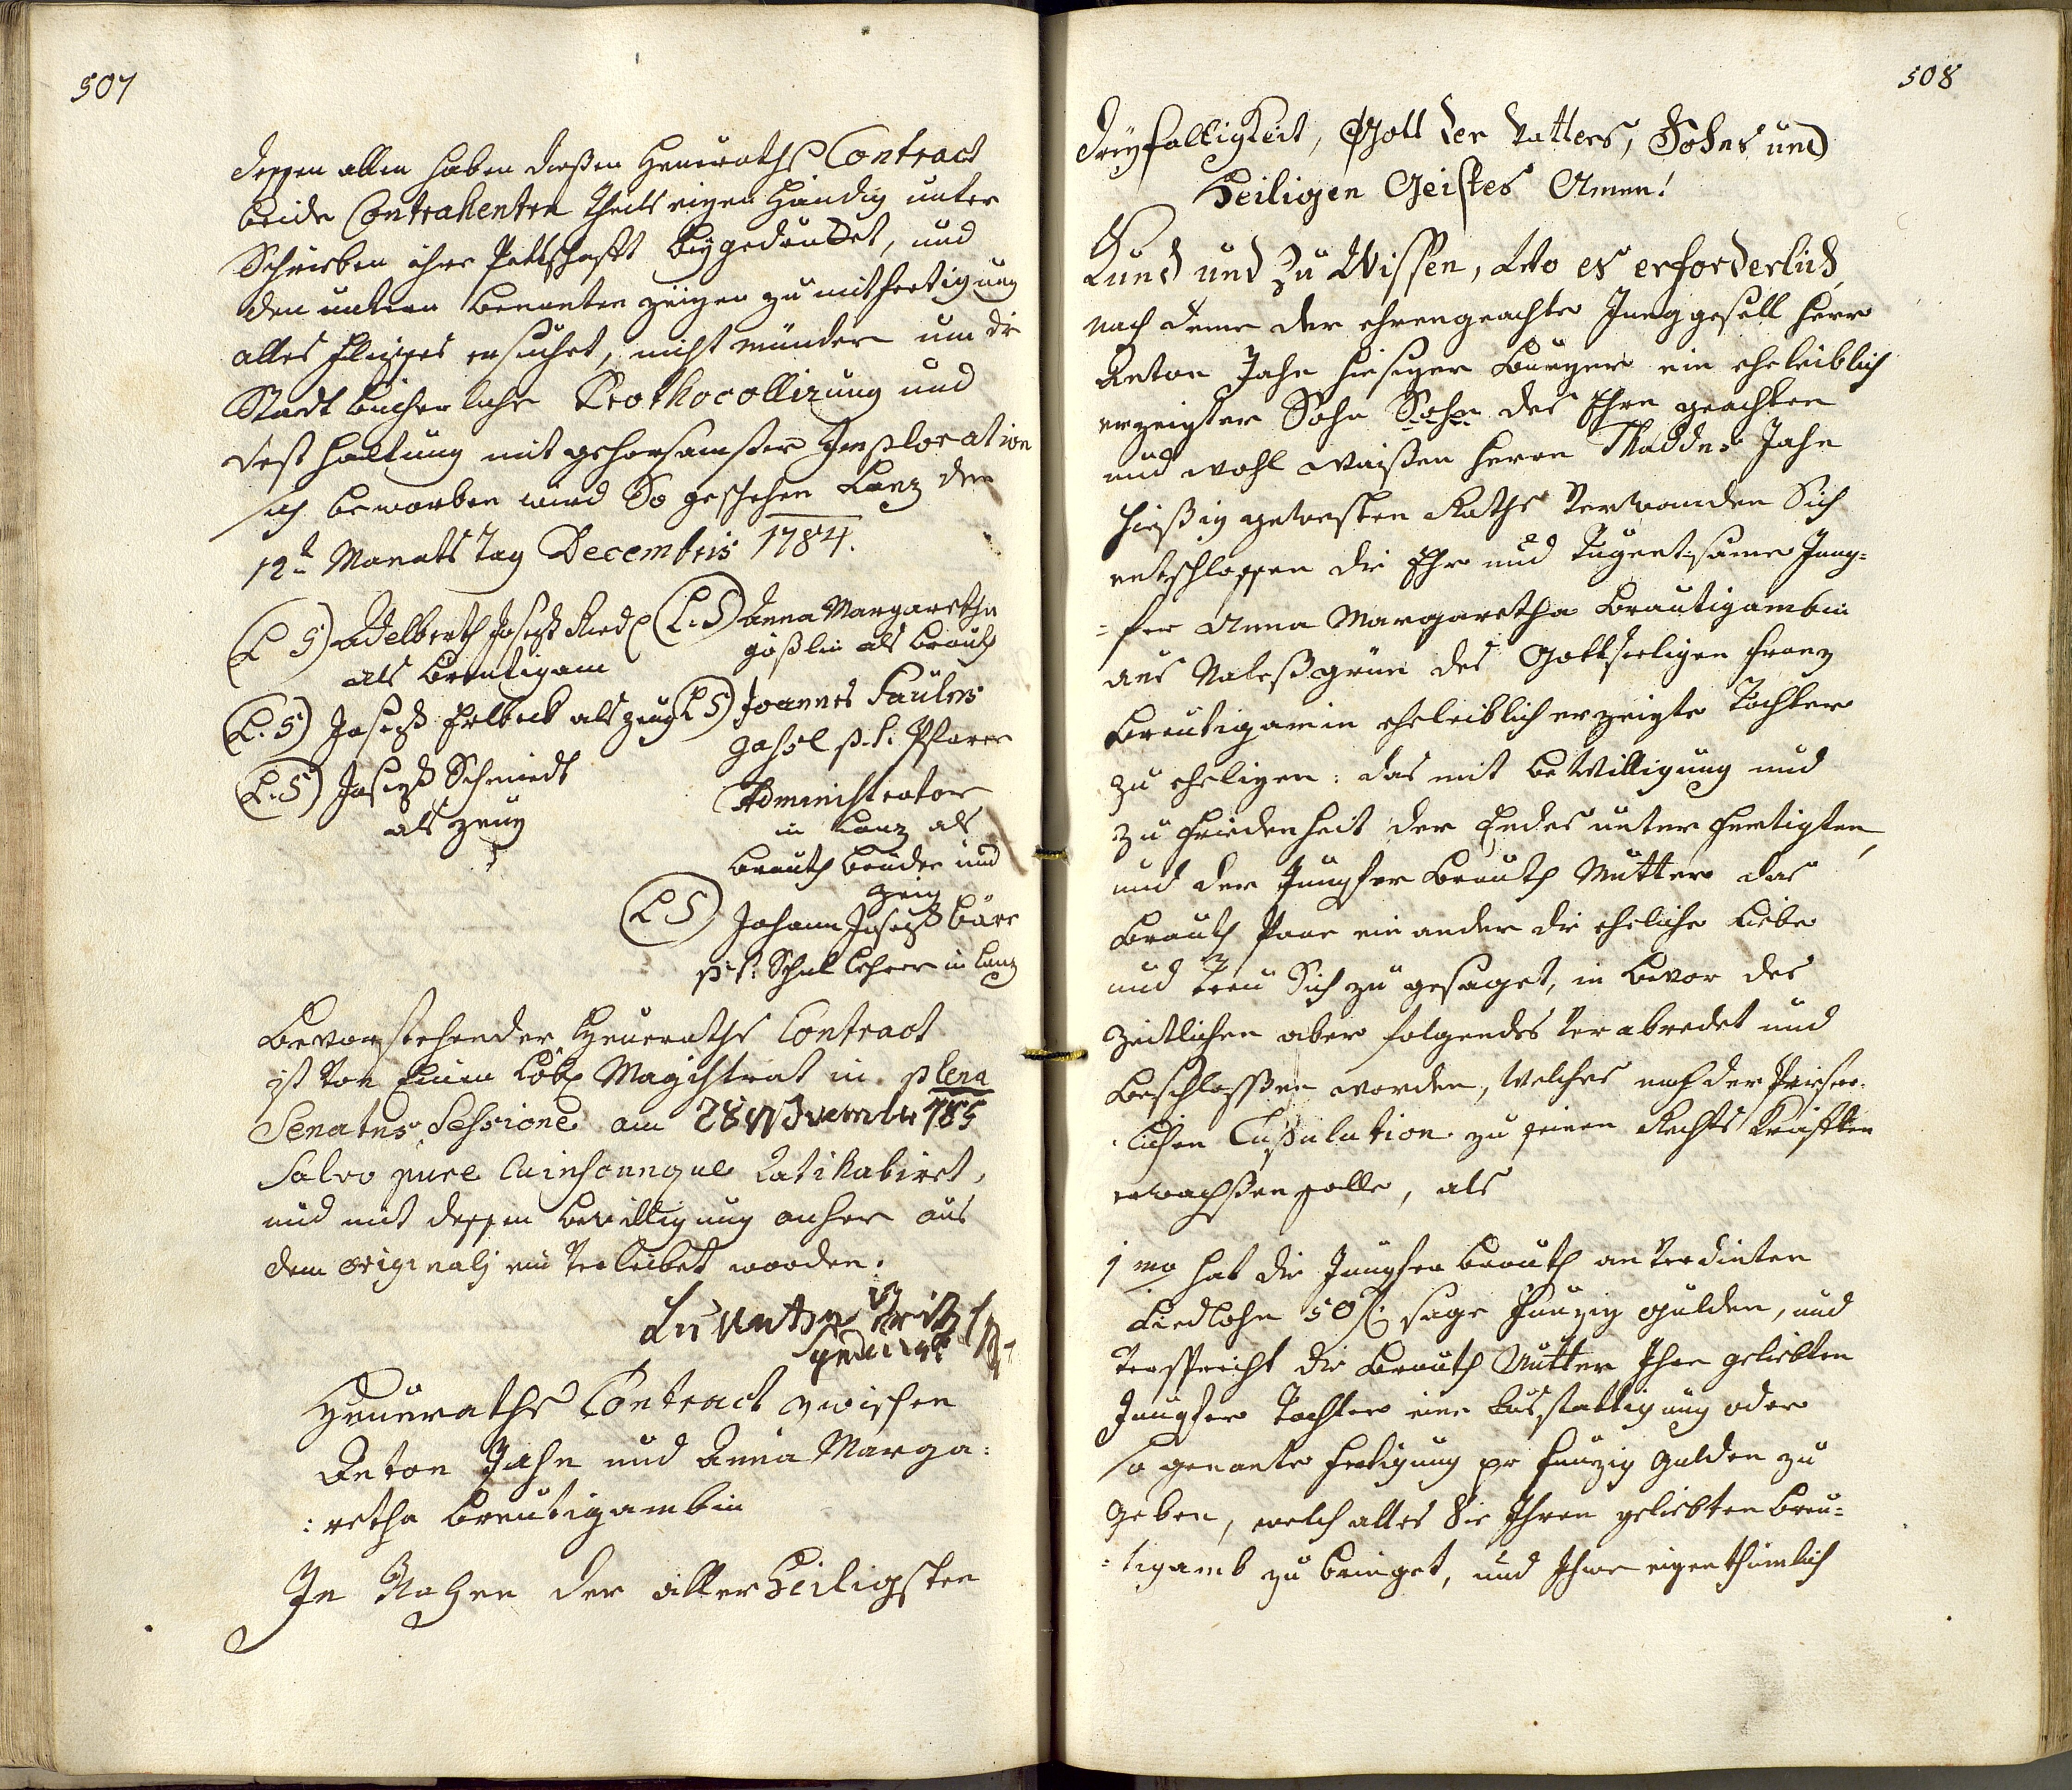 507
dessen allen haben dießen Heuraths Contract
beide Contrahenten Theils eigen Händig unter
Schrieben ihre Pettschafft beygedrucket, und
den unten benanten zeigen zu mitfertigung
alles fleisses ersuchet, nicht münder um die
Stadt bücherliche Prothocollirung und
Vest haltung mit gehorsamster Imploration
sich beworben wird So geschehen Lanz den
12t Monats Tag Decembris 1784.
(L S) Adelberth Joseph Riedl
als Breutigam
(L. S) Anna Margaretha
gößlin als Brauth
(L. S) Joseph Helbeck als zeug
(L S) Joannes Paulus
Gahsl p. t. Pfarr
Administrator
in Lanz als
Brauth bruder und
zeig
(L. S) Joseph Schmidt
als zeug
(L S) Johann Joseph Bäre
p: t: Schul Lehrer in Lanz
Bevorstehender Heuraths Contract
ist von Einem Löbl Magistrat in plena
Senatus Sessione am 28 November 785
Salvo jure Cuiuscunque Ratihabiret,
und mit dessen bewilligung anher aus
dem originalj ein Verleibet worden.
Heuraths Contract zwischen
Anton Jahn und Anna Marga:
:retha Breutigambin
In Nahmen der aller Heiligsten
508
Dreyfaltigkeit, Gott der Vatters, Sohns und
Heiligen Geistes Amen!
Kund und zu Wissen, Wo es erforderlich,
nach deme der ehrengeachte Junggesell Herr
Anton Jahn hiesiger Bürger ein eheleiblich
erzeigter Sohn Sohn des Ehrn geachten
und wohl weisen Herrn Thaddes Jahn
hiesig gewesten Raths Verwanden Sich
entschlossen die Ehr und Tugentsame Jung=
=fer Anna Margaretha Brautigambin
aus Naleßgrün des Gottseeligen Franz
Breutigamin eheleiblich erzeigte Tochter
zu eheligen: das mit beWilligung und
zu friedenheit der Endes unter fertigten,
und der Jungfer Brauth Mutter das
Brauth Paar ein ander die eheliche Liebe
und treu Sich zu gesaget, in bevor des
zeitlichen aber folgendes Verabredet und
beschlossen worden, Welches nach der Priester:
:lichen Cupulation zu seinen Rechts Kräfften
erwachßen solle, als
1mo hat die Jungfer Brauth an Verdinten
Liedlohn 50 f: sage Funzig gulden, und
Verspricht die Brauth Mutter Ihre geliebten
Jungfer Tochter eine Ausstattigung oder
so genante fertigung pr Funzig gulden zu
geben, welch alles Sie Ihren geliebten Breu=
=tigamb zu bringet, und Ihme eigenthümlich